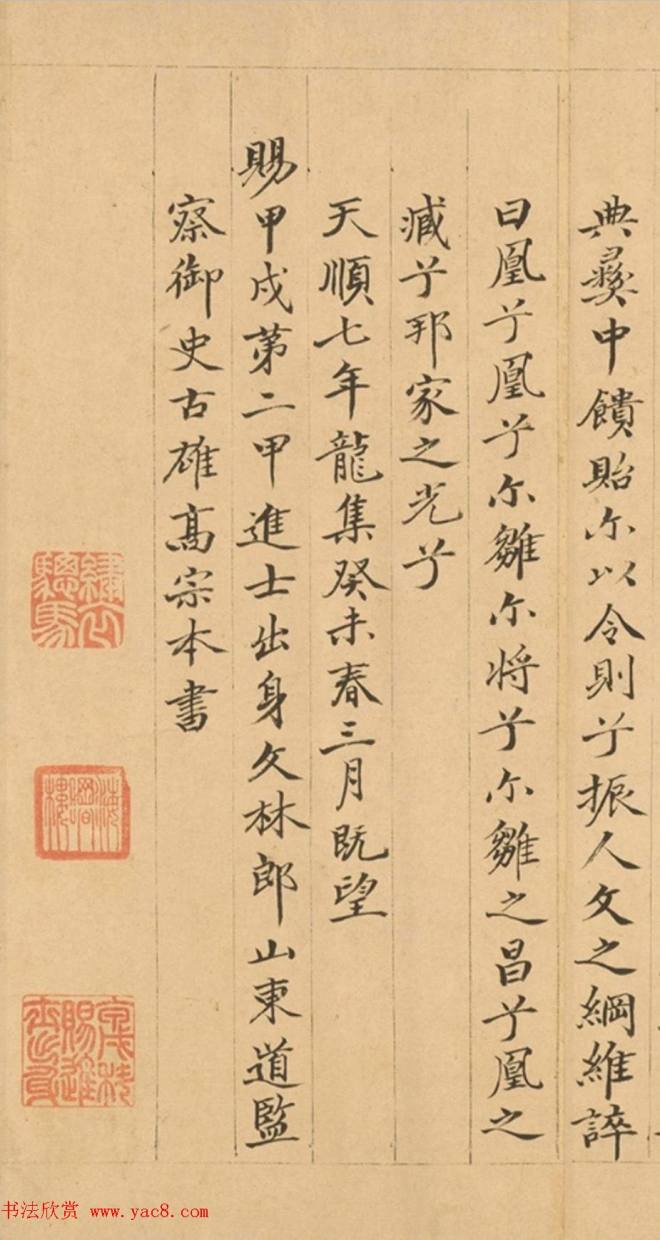 典彝中饋貽尓以令則兮振人文之綱維誶
曰凰兮凰兮尓雛尓将兮尓雛之昌兮凰之
臧兮邦家之光兮
天順七年龍集癸未春三月既望
賜甲戌第二甲進士出身文林郎山東道監
察御史古雄髙宗本書
繡衣驄馬
书法欣赏 www.yac8.com